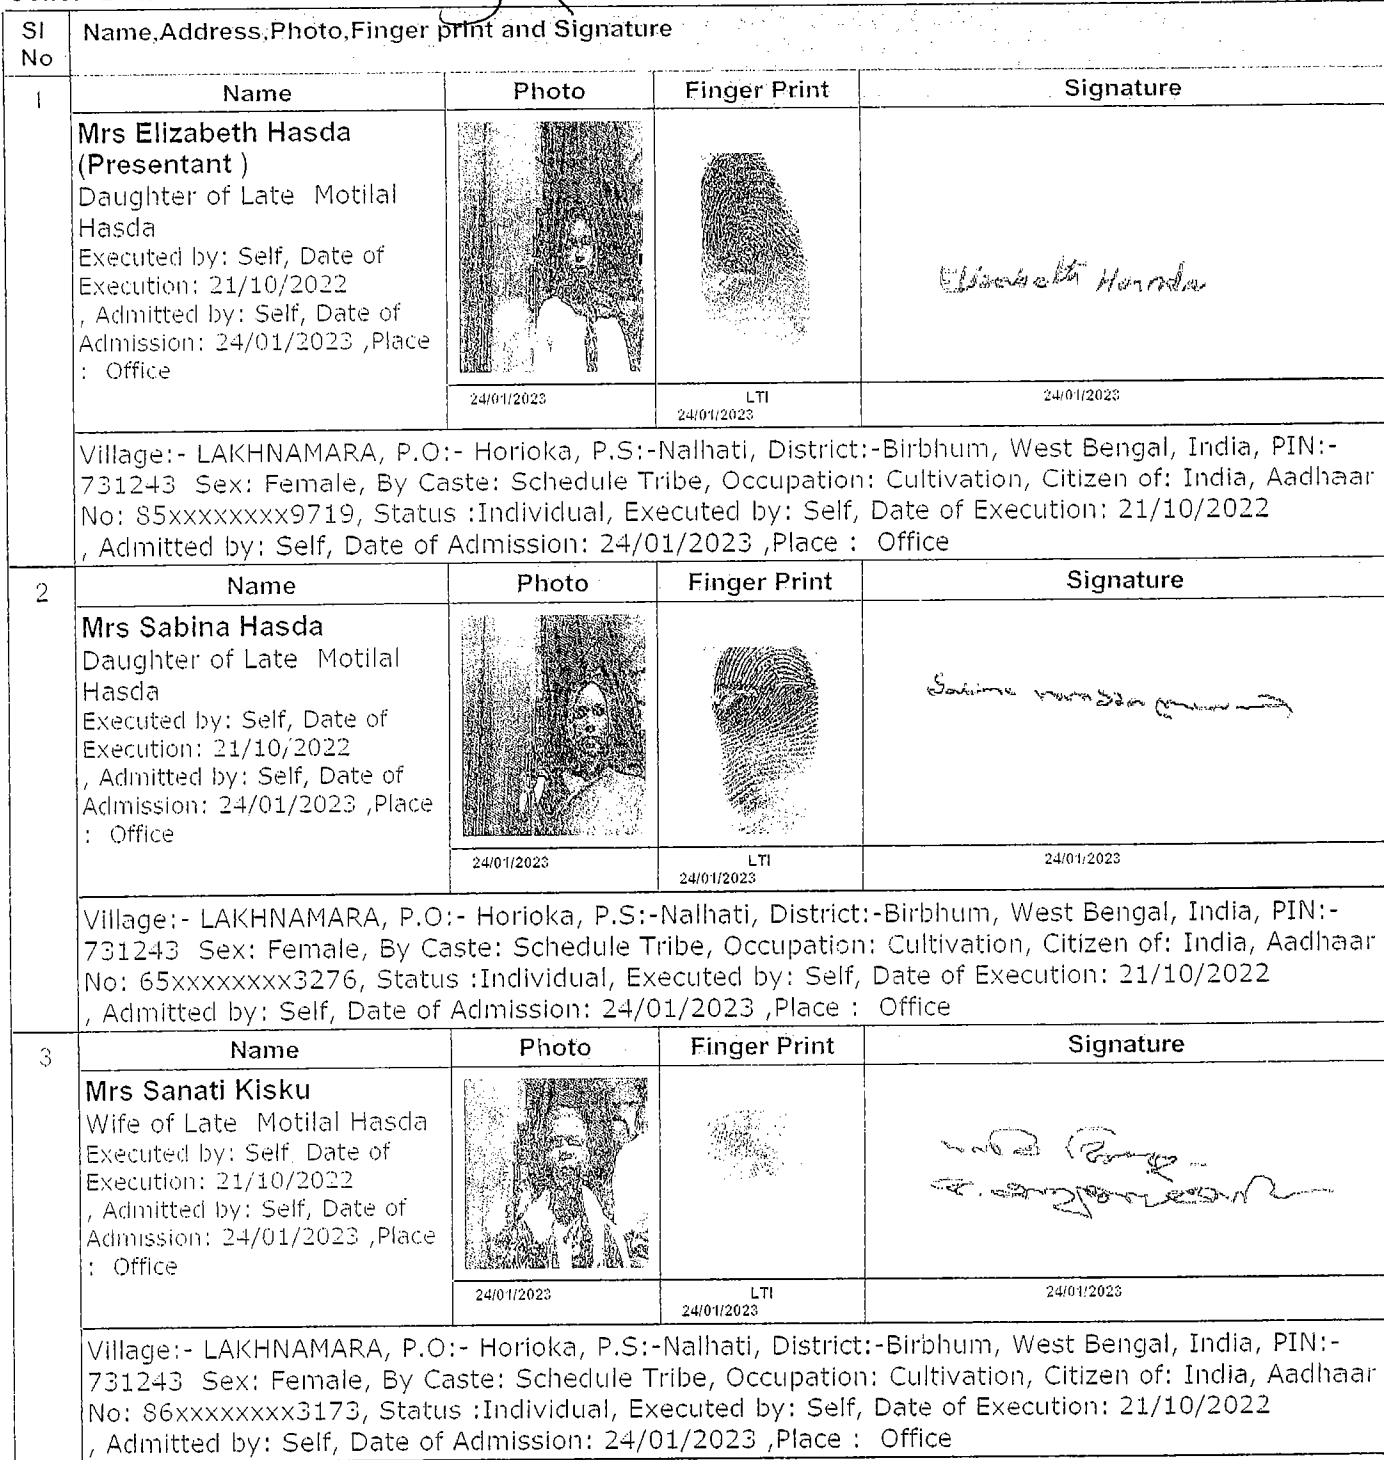 Sl No
Name,Address,Photo,Finger print and Signature
1
Name
Photo
Finger Print
Signature
Mrs Elizabeth Hasda
(Presentant )
Daughter of Late Motilal
Hasda
Executed by: Self, Date of
Execution: 21/10/2022
, Admitted by: Self, Date of
Admission: 24/01/2023 ,Place
: Office
Elizabeth Hasda
24/01/2023
LTI
24/01/2023
24/01/2023
Village:- LAKHNAMARA, P.O:- Horioka, P.S:-Nalhati, District:-Birbhum, West Bengal, India, PIN:-
731243 Sex: Female, By Caste: Schedule Tribe, Occupation: Cultivation, Citizen of: India, Aadhaar
No: 85xxxxxxxx9719, Status :Individual, Executed by: Self, Date of Execution: 21/10/2022
, Admitted by: Self, Date of Admission: 24/01/2023 ,Place : Office
2
Name
Photo
Finger Print
Signature
Mrs Sabina Hasda
Daughter of Late Motilal
Hasda
Executed by: Self, Date of
Execution: 21/10/2022
, Admitted by: Self, Date of
Admission: 24/01/2023 ,Place
: Office
24/01/2023
LTI
24/01/2023
24/01/2023
Village:- LAKHNAMARA, P.O:- Horioka, P.S:-Nalhati, District:-Birbhum, West Bengal, India, PIN:-
731243 Sex: Female, By Caste: Schedule Tribe, Occupation: Cultivation, Citizen of: India, Aadhaar
No: 65xxxxxxxx3276, Status :Individual, Executed by: Self, Date of Execution: 21/10/2022
, Admitted by: Self, Date of Admission: 24/01/2023 ,Place : Office
3
Name
Photo
Finger Print
Signature
Mrs Sanati Kisku
Wife of Late Motilal Hasda
Executed by: Self, Date of
Execution: 21/10/2022
, Admitted by: Self, Date of
Admission: 24/01/2023 ,Place
: Office
24/01/2023
LTI
24/01/2023
24/01/2023
Village:- LAKHNAMARA, P.O:- Horioka, P.S:-Nalhati, District:-Birbhum, West Bengal, India, PIN:-
731243 Sex: Female, By Caste: Schedule Tribe, Occupation: Cultivation, Citizen of: India, Aadhaar
No: 86xxxxxxxx3173, Status :Individual, Executed by: Self, Date of Execution: 21/10/2022
, Admitted by: Self, Date of Admission: 24/01/2023 ,Place : Office